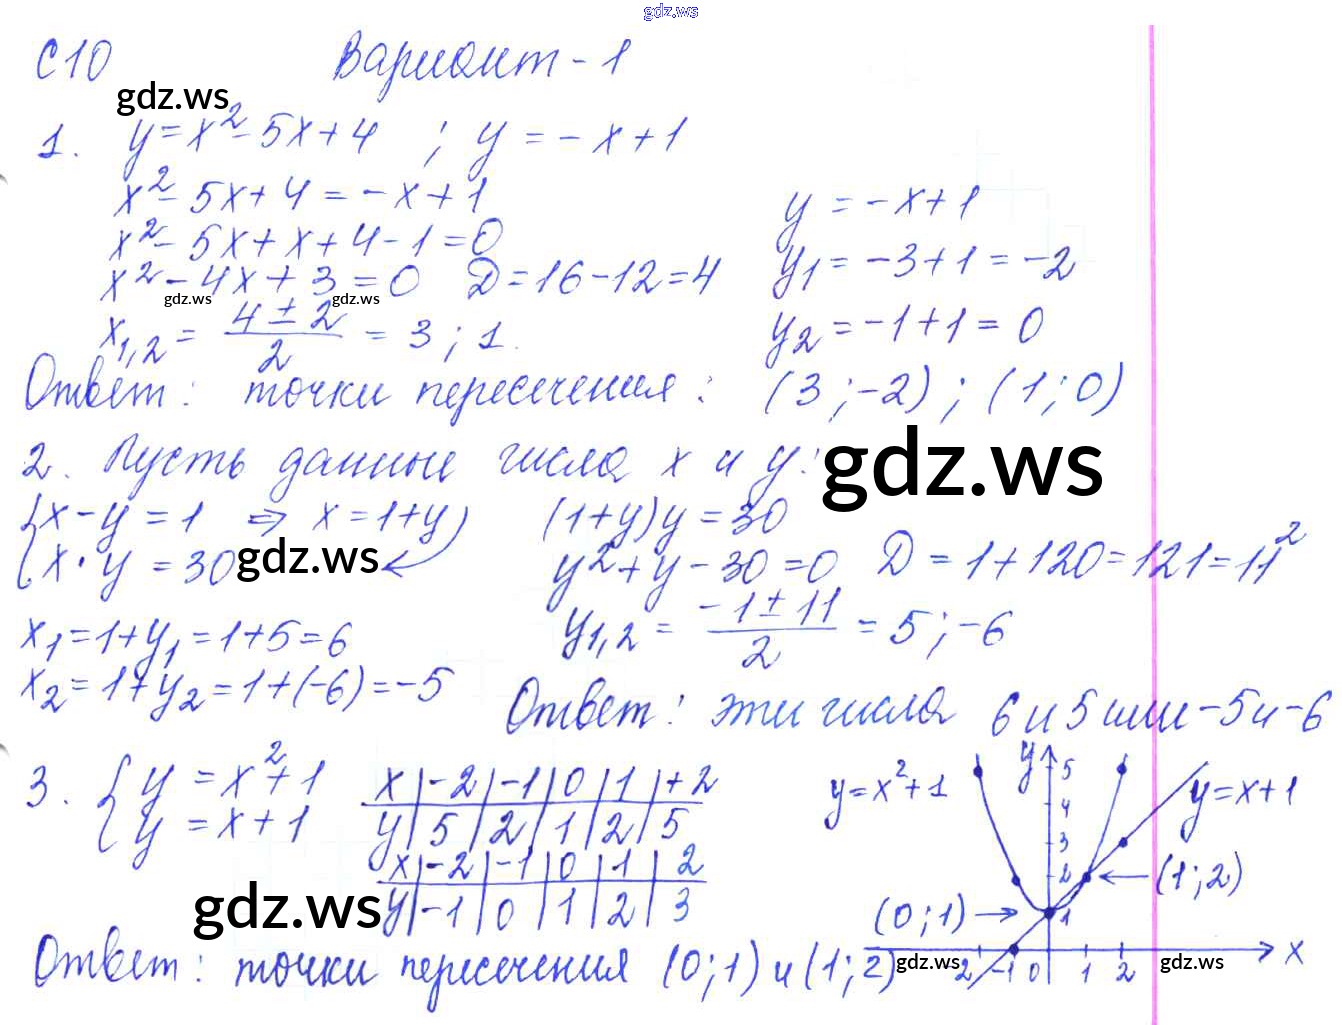 gdz.ws
С10 Вариант - 1
gdz.ws
1. y = x² - 5x + 4 ; y = - x + 1
x² - 5x + 4 = - x + 1
x² - 5x + x + 4 - 1 = 0
x² - 4x + 3 = 0 D = 16 - 12 = 4
gdz.ws gdz.ws
x1,2 = (4 ± 2)/2 = 3 ; 1.
y = -x + 1
y1 = -3 + 1 = -2
y2 = -1 + 1 = 0
Ответ: точки пересечения: (3 ; -2) ; (1 ; 0)
2. Пусть данные числа x и y:
gdz.ws
{ x - y = 1 ⇒ x = 1 + y
{ x · y = 30
gdz.ws
(1 + y) y = 30
y² + y - 30 = 0 D = 1 + 120 = 121 = 11²
y1,2 = (-1 ± 11)/2 = 5 ; -6
x1 = 1 + y1 = 1 + 5 = 6
x2 = 1 + y2 = 1 + (-6) = -5
Ответ: эти числа 6 и 5 или -5 и -6
3. { y = x² + 1
{ y = x + 1
x | -2 | -1 | 0 | 1 | +2
y | 5 | 2 | 1 | 2 | 5
x | -2 | -1 | 0 | 1 | 2
y | -1 | 0 | 1 | 2 | 3
gdz.ws
y = x² + 1
y
5
4
3
2
1
y = x + 1
(1 ; 2)
(0 ; 1)
-2 -1 0 1 2 x
gdz.ws gdz.ws
Ответ: точки пересечения (0 ; 1) и (1 ; 2)